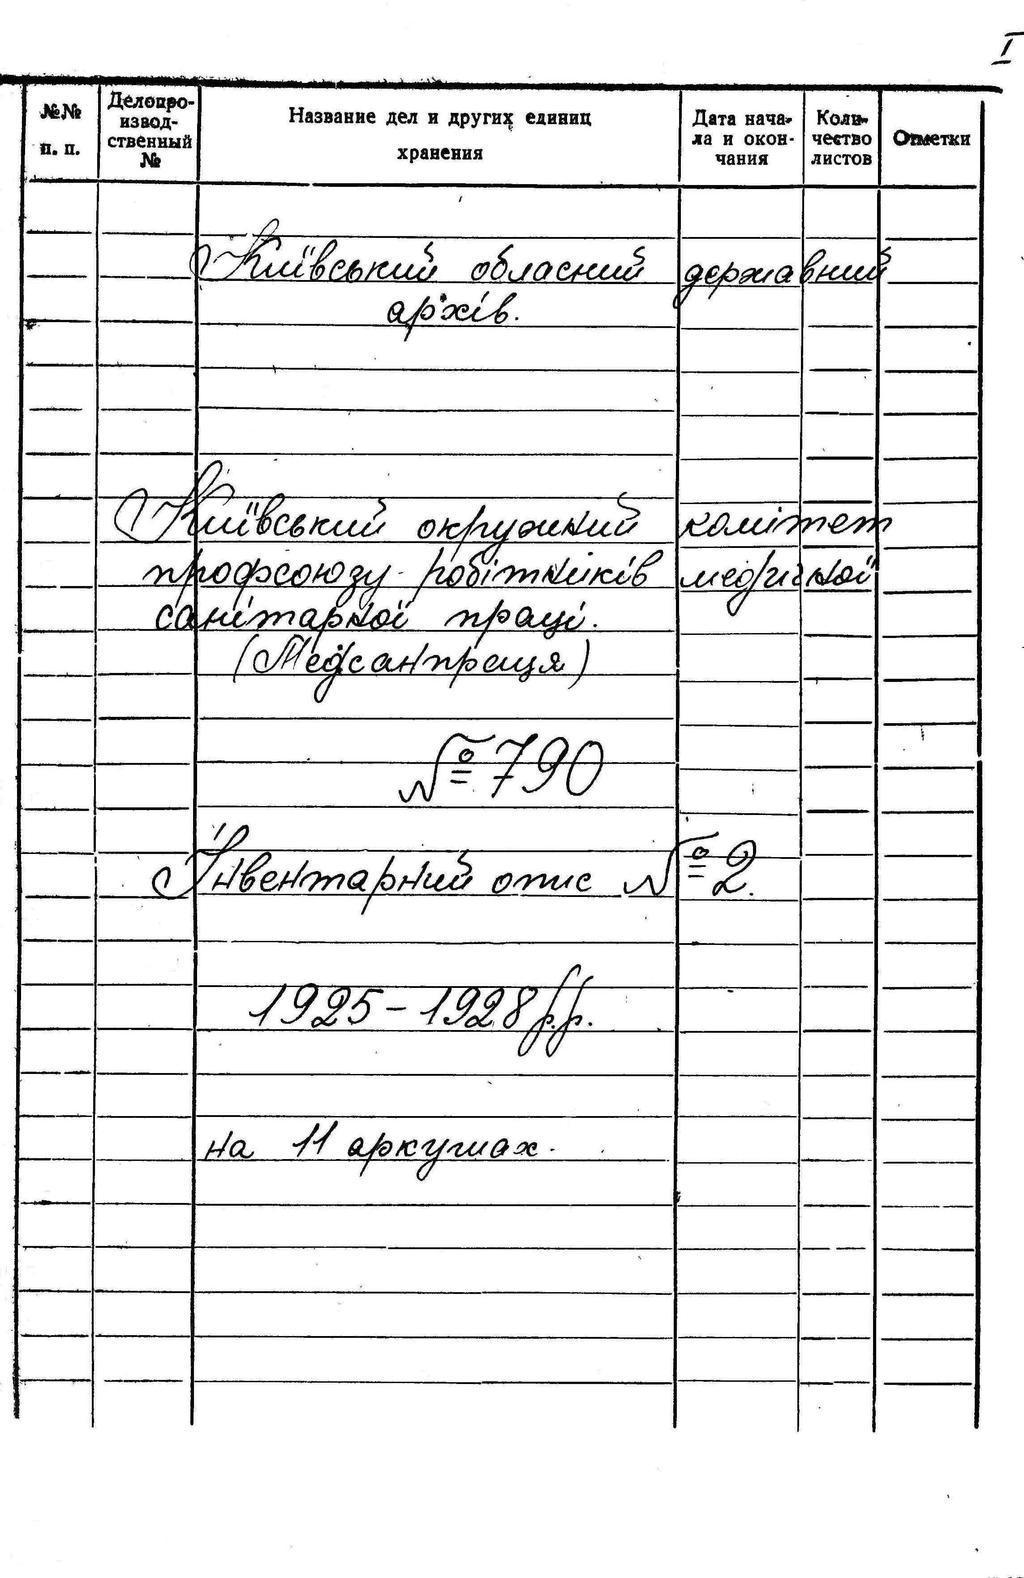 I
№№ п. п.
Делопро-
извод-
ственный
№
Название дел и других единиц
хранения
Дата нача-
ла и окон-
чания
Коли-
чество
листов
Отметки
Київський обласний державний
архів.
Київський окружний комітет
профсоюзу робітників медичної
санітарної праці.
(Медсанпраця)
№ 790
Інвентарний опис № 2.
1925-1928 р.р.
на 11 аркушах.